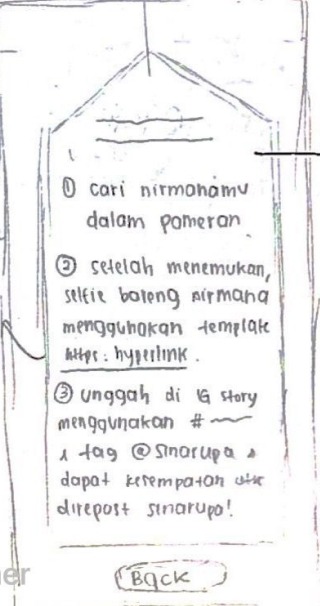 ① cari nirmanamu
dalam pameran
② setelah menemukan,
selfie bareng nirmana
menggunakan template
https: hyperlink.
③ unggah di IG story
menggunakan #
& tag @sinarupa &
dapat kesempatan utk
direpost sinarupa!
er
Back